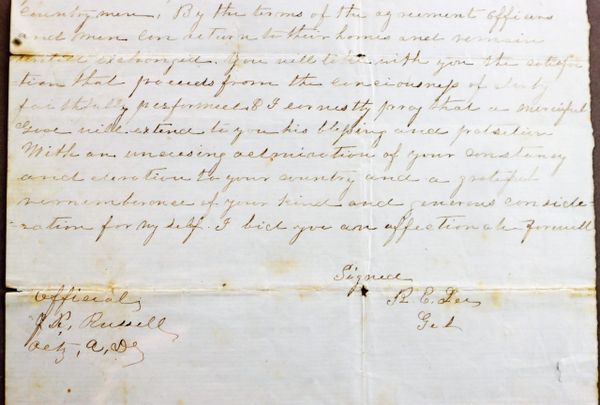 Countrymen, By the terms of the agreement Officers
and men can return to their homes and remain
until exchanged. You will take with you the satisfac-
tion that proceeds from the consciousness of duty
faithfully performed & I earnestly pray that a merciful
God will extend to you his blessing and protection
With an unceasing admiration of your constancy
and devotion to your country and a grateful
rememberance of your kind and generous conside-
-ration for myself. I bid you an affectionate farewell
Signed
R. E. Lee
Genl
Official
Russell